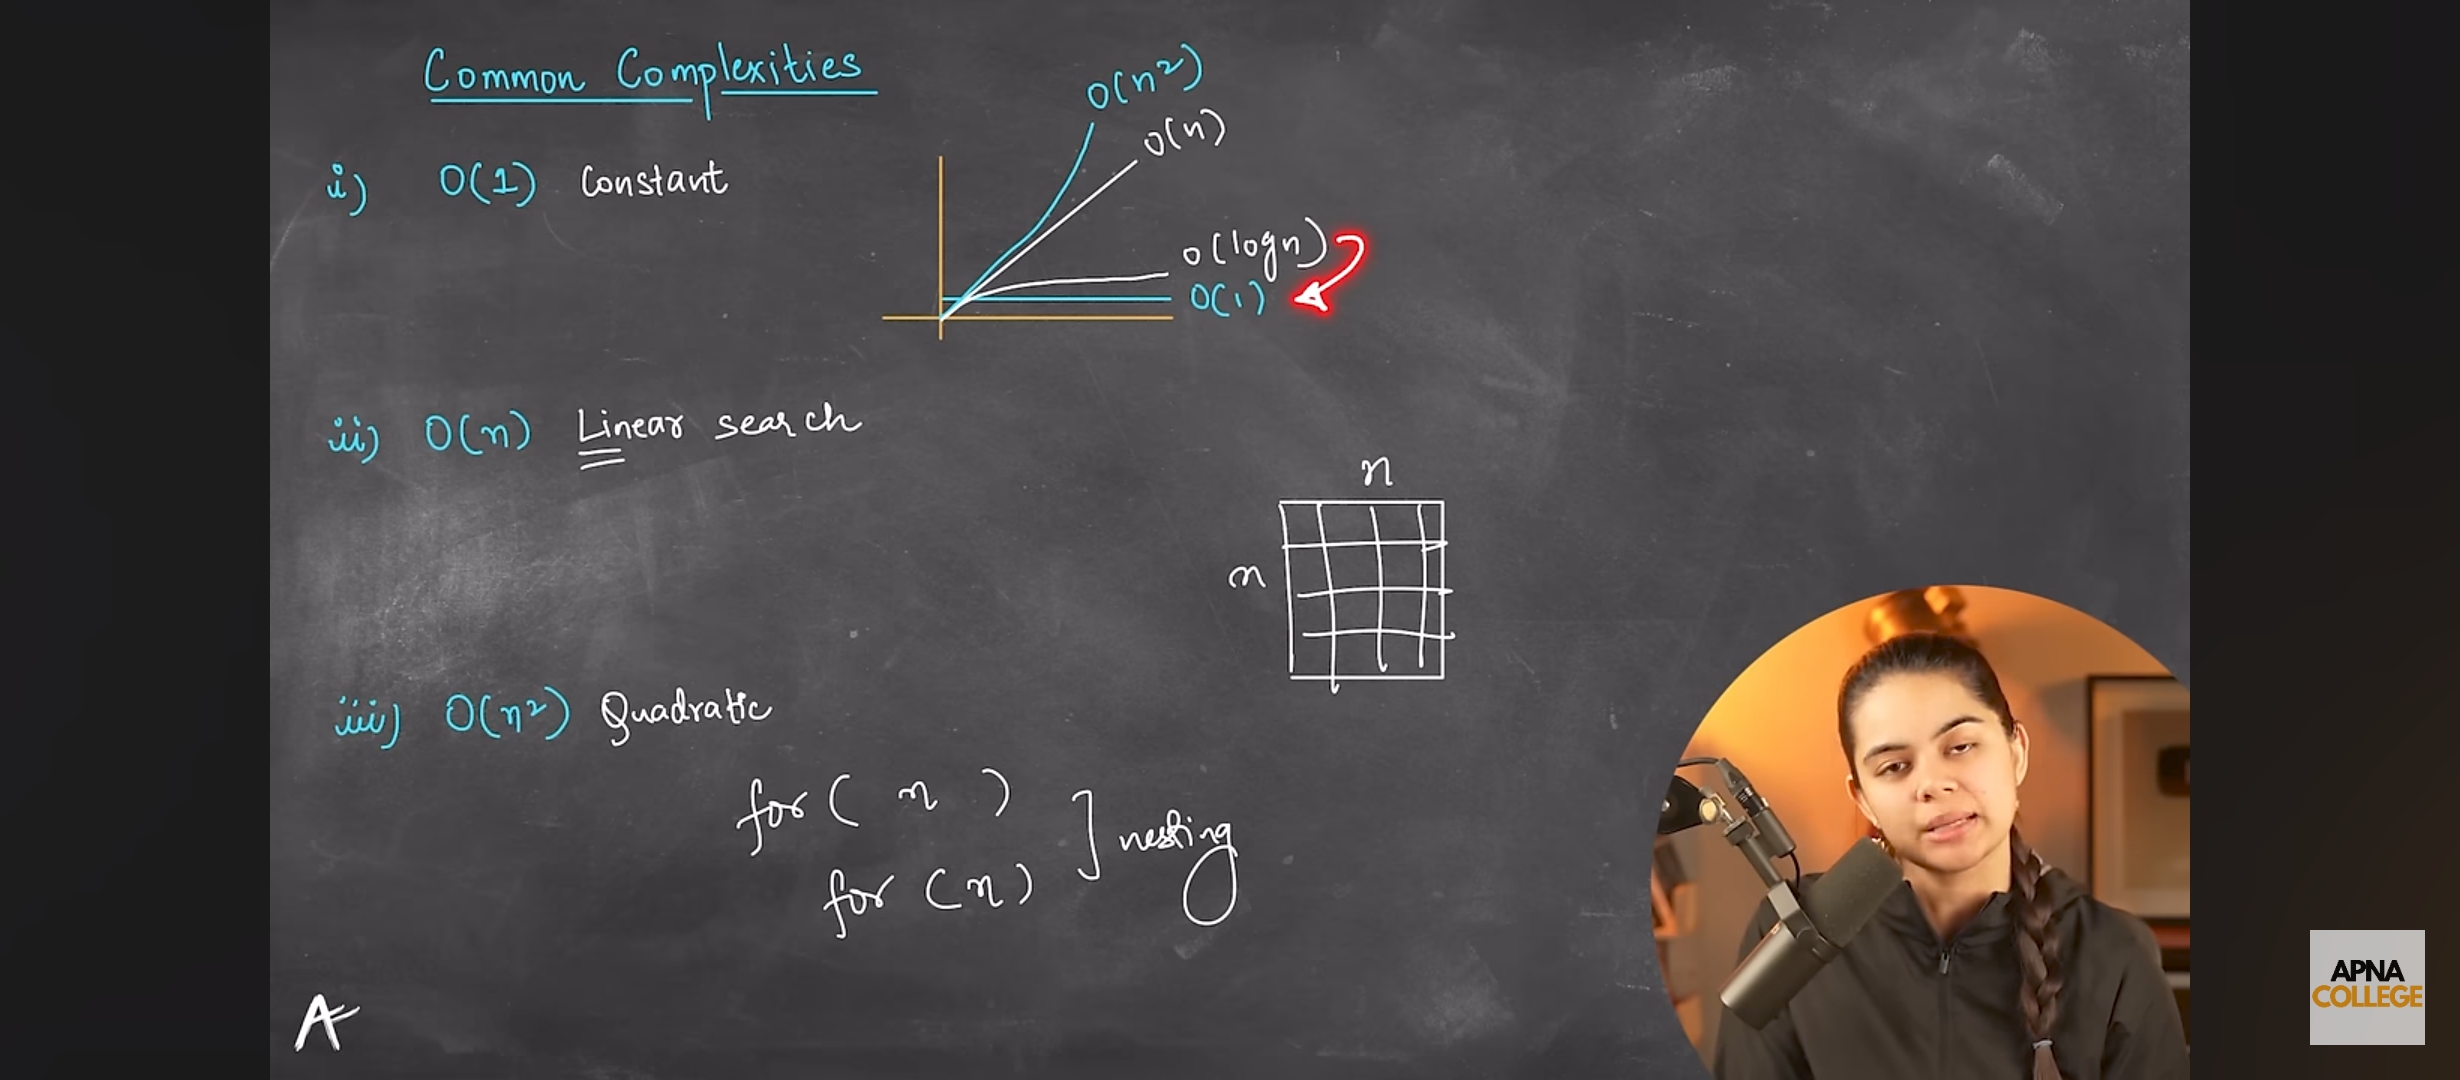 Common Complexities
i) O(1) Constant
O(n²)
O(n)
O(logn)
O(1)
ii) O(n) Linear search
n
n
iii) O(n²) Quadratic
for ( n )
for (n)
] nesting
A
APNA
COLLEGE